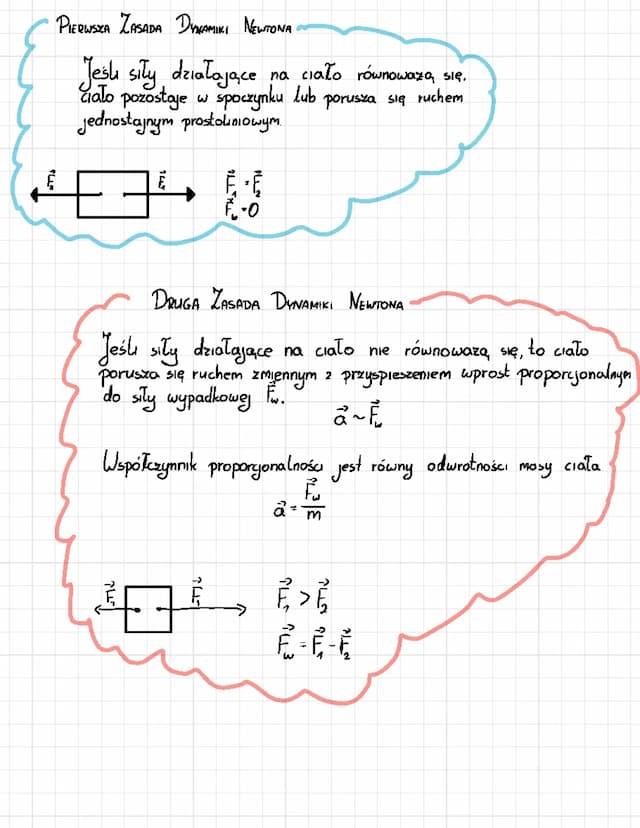 Pierwsza Zasada Dynamiki Newtona
Jeśli siły działające na ciało równoważą się,
ciało pozostaje w spoczynku lub porusza się ruchem
jednostajnym prostoliniowym.
F⃗₁ = F⃗₂
F⃗w = 0
Druga Zasada Dynamiki Newtona
Jeśli siły działające na ciało nie równoważą się, to ciało
porusza się ruchem zmiennym z przyspieszeniem wprost proporcjonalnym
do siły wypadkowej F⃗w.
a⃗ ~ F⃗w
Współczynnik proporcjonalności jest równy odwrotności masy ciała
a⃗ = F⃗w/m
F⃗₁ F⃗₁ F⃗₁ > F⃗₂
F⃗w = F⃗₁ - F⃗₂